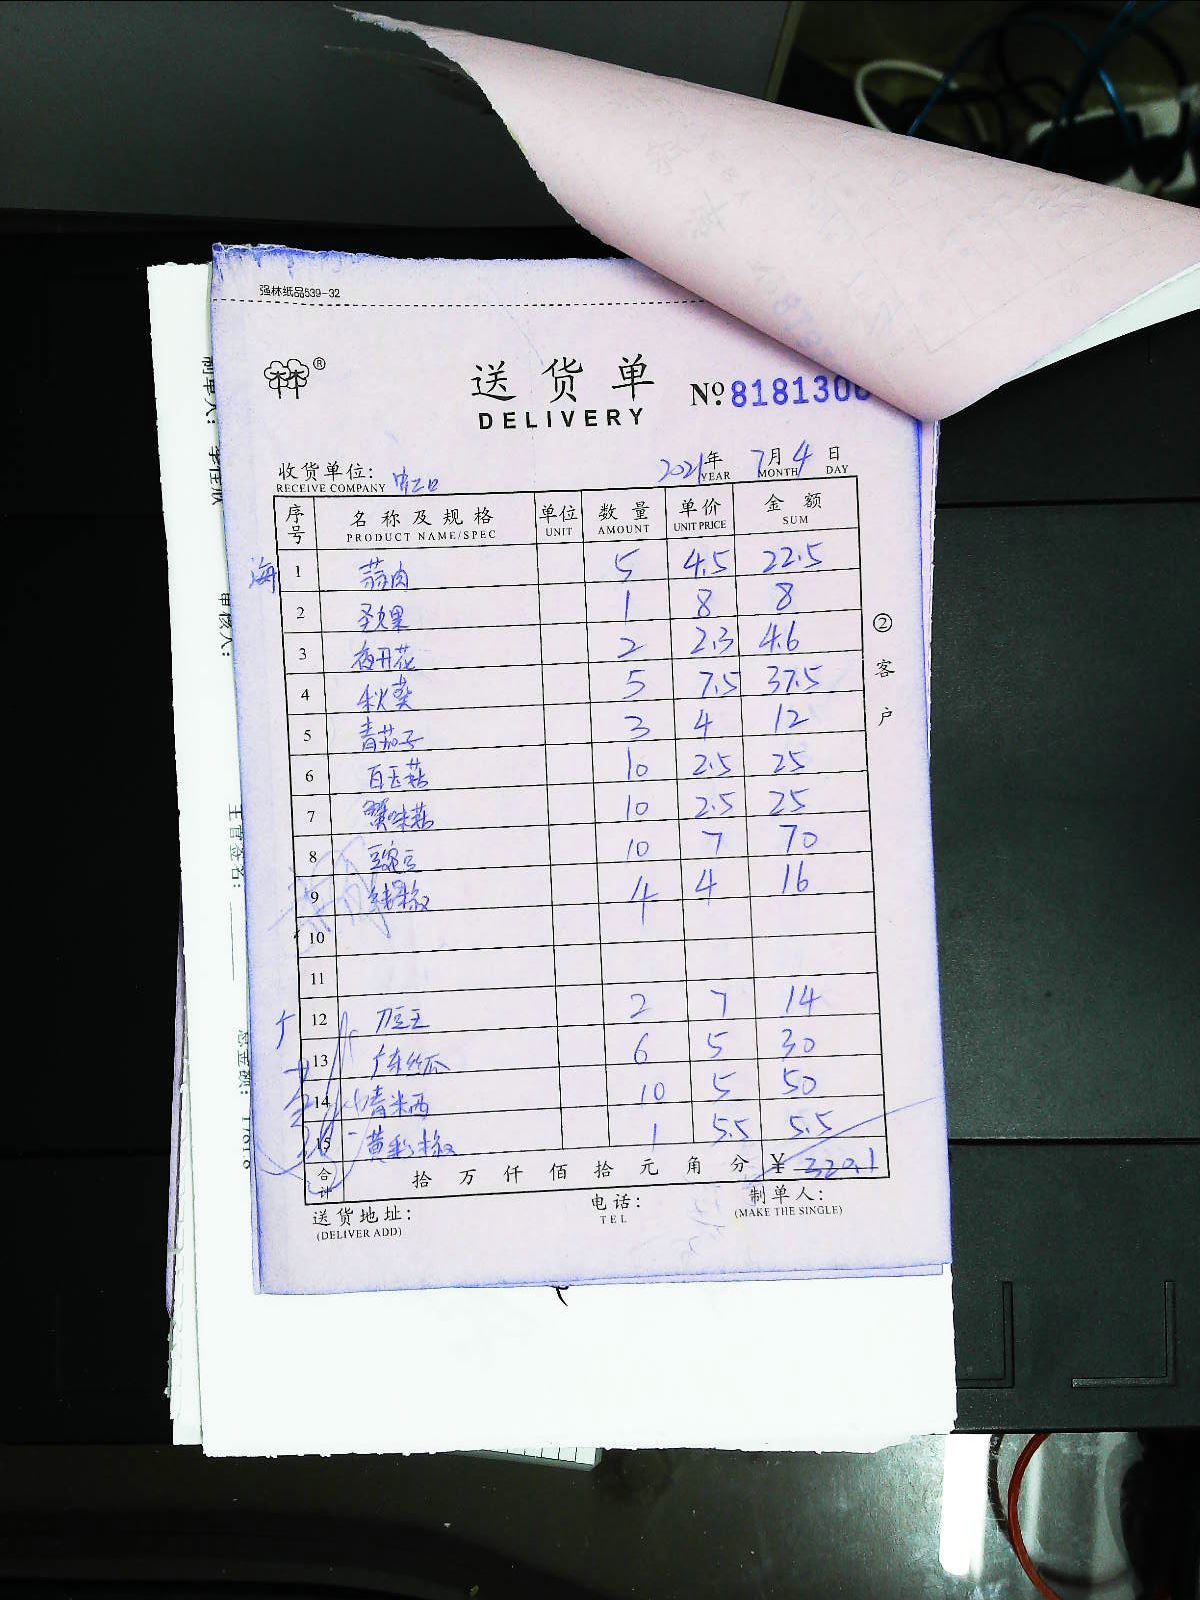 强林纸品539-32
送货单
DELIVERY
№ 818130
收货单位:
RECEIVE COMPANY
2021年 7月 4日
YEAR MONTH DAY
序号 名称及规格 单位 数量 单价 金额
PRODUCT NAME/SPEC UNIT AMOUNT UNIT PRICE SUM
海 1 蒜肉 5 4.5 22.5
2 圣女果 1 8 8
3 夜开花 2 2.3 4.6
4 秋葵 5 7.5 37.5
5 青茄子 3 4 12
6 白玉菇 10 2.5 25
7 蟹味菇 10 2.5 25
8 豌豆 10 7 70
9 4 4 16
10
11
12 刀豆王 2 7 14
13 广东丝瓜 6 5 30
14 小青米西 10 5 50
15 黄彩椒 1 5.5 5.5
合计 拾 万 仟 佰 拾 元 角 分 ¥ 320.1
送货地址:
(DELIVER ADD)
电话:
TEL
制单人:
(MAKE THE SINGLE)
②客户
制单人:
审核人:
主管签名:
总金额: 1761.8